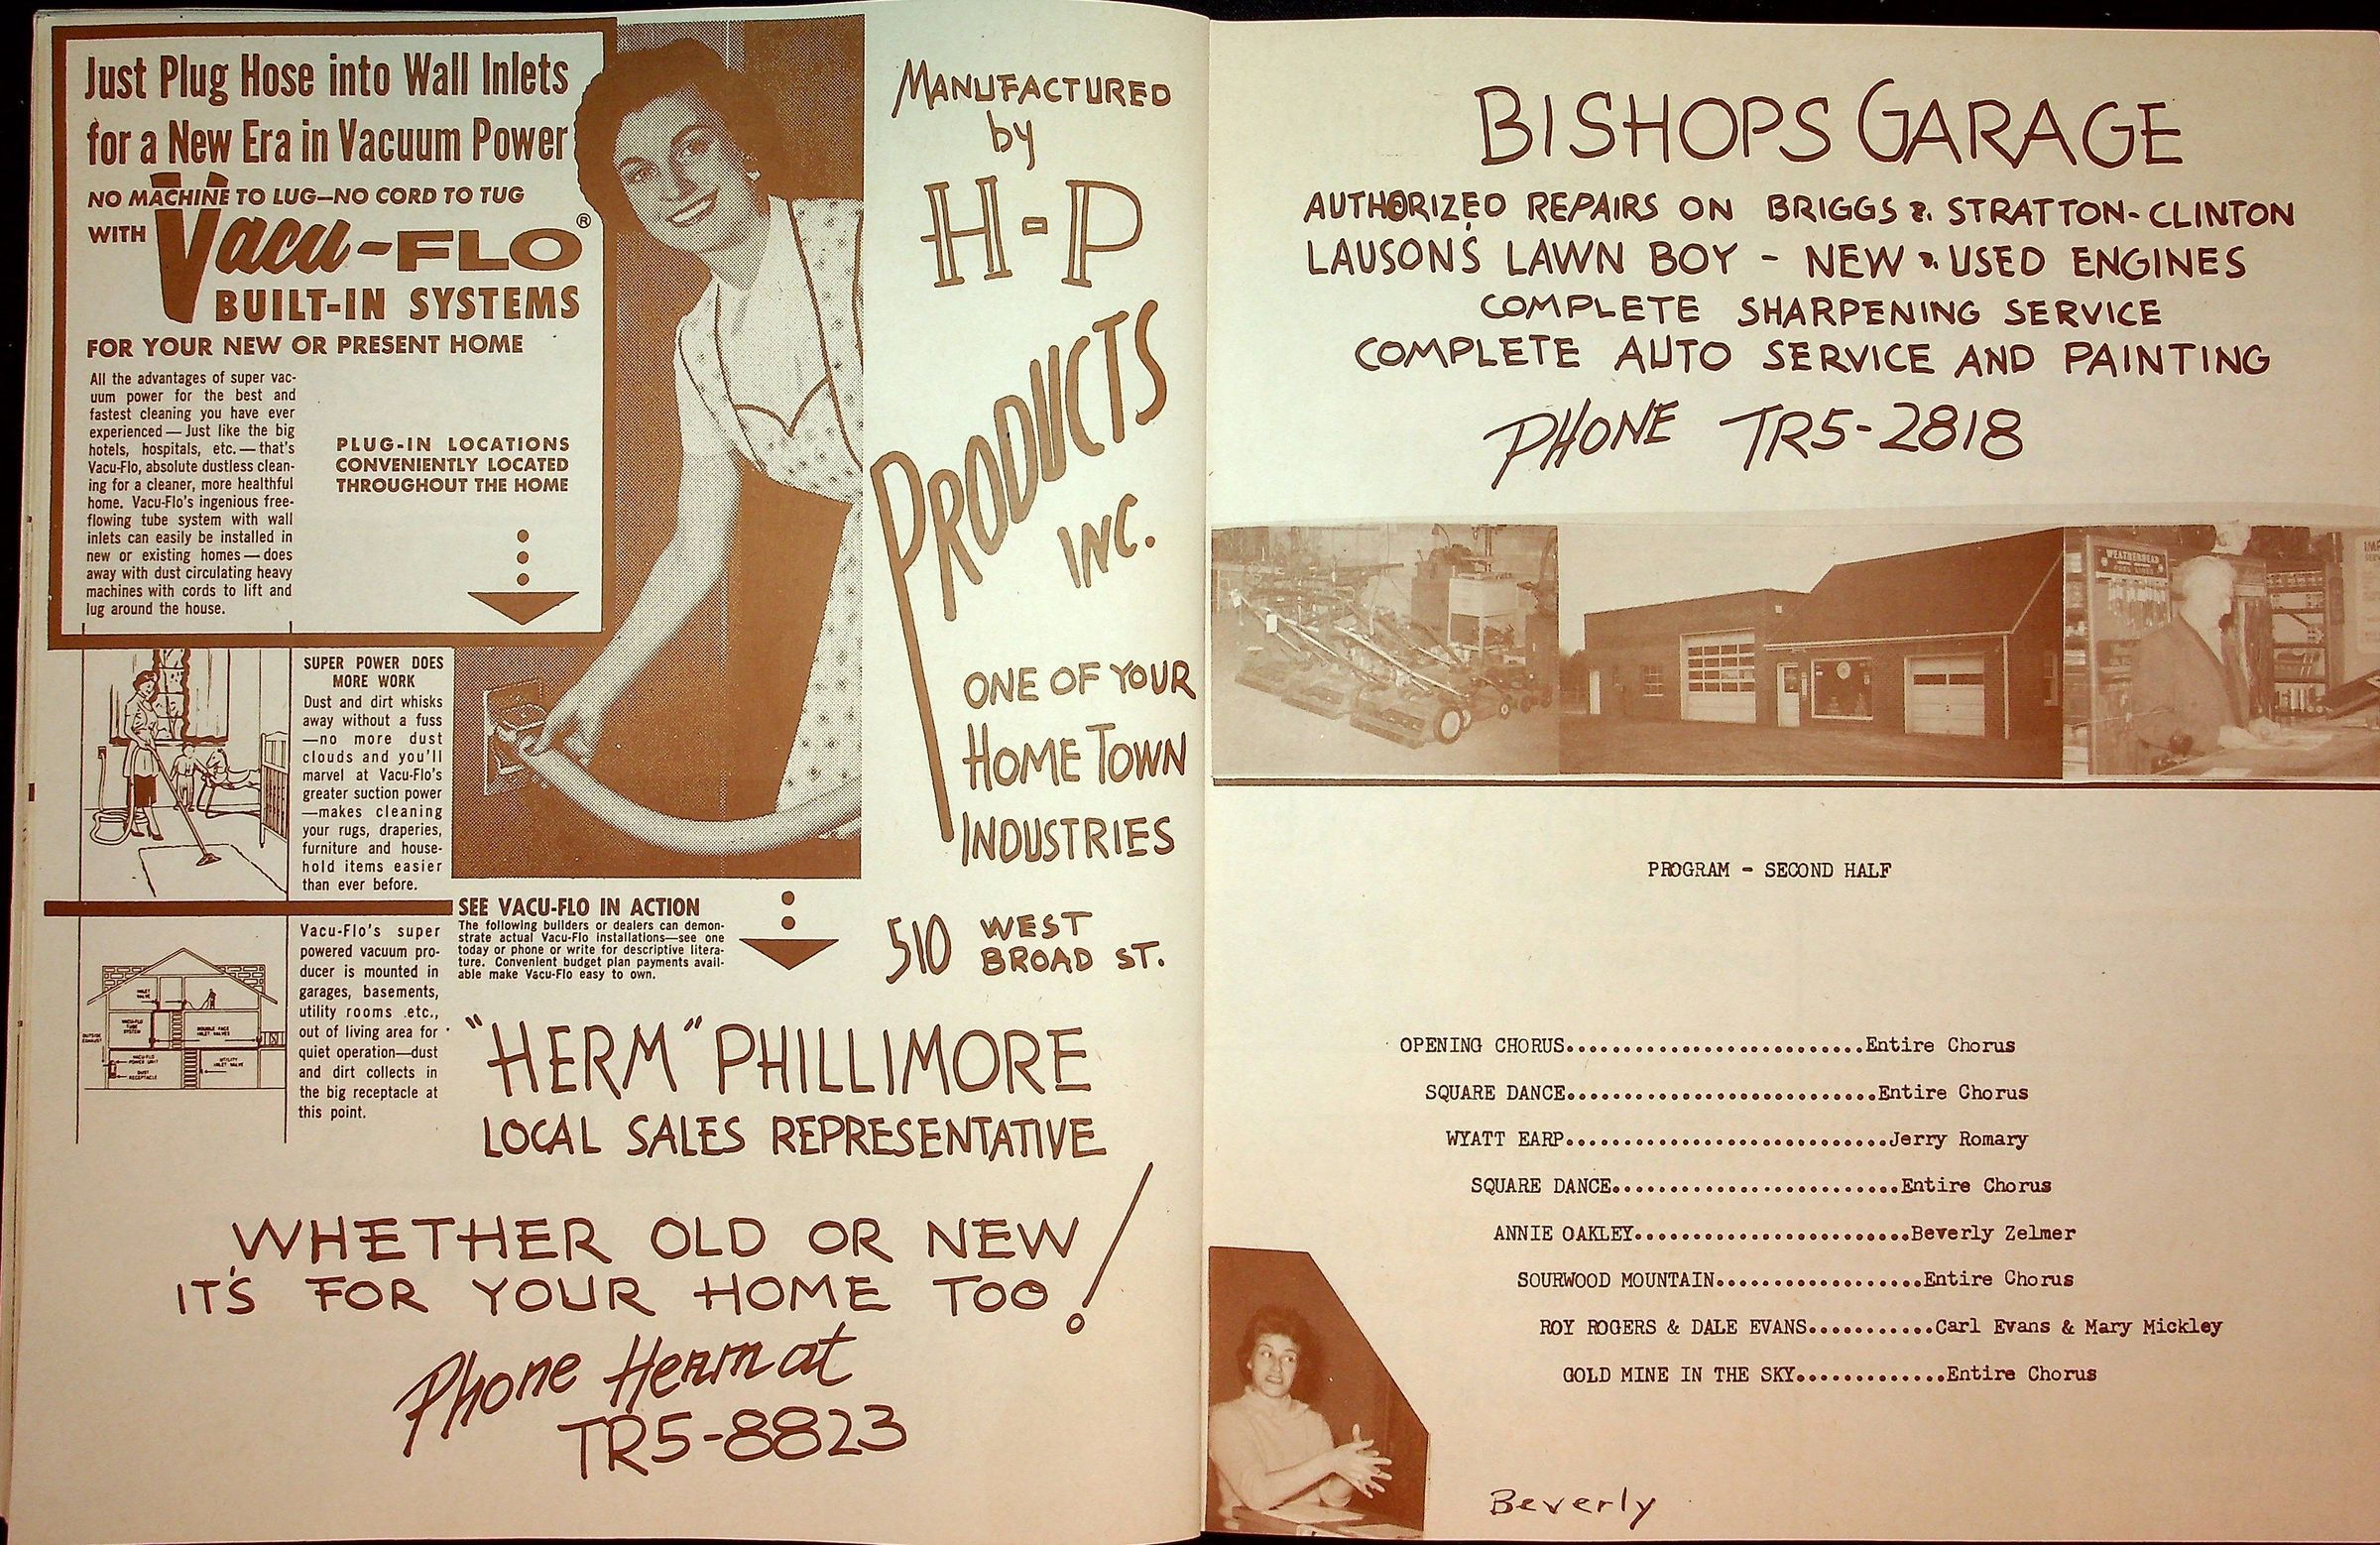 Just Plug Hose into Wall Inlets
for a New Era in Vacuum Power
NO MACHINE TO LUG—NO CORD TO TUG
WITH Vacu-FLO®
BUILT-IN SYSTEMS
FOR YOUR NEW OR PRESENT HOME
All the advantages of super vac-
uum power for the best and
fastest cleaning you have ever
experienced — Just like the big
hotels, hospitals, etc. — that's
Vacu-Flo, absolute dustless clean-
ing for a cleaner, more healthful
home. Vacu-Flo's ingenious free-
flowing tube system with wall
inlets can easily be installed in
new or existing homes — does
away with dust circulating heavy
machines with cords to lift and
lug around the house.
PLUG-IN LOCATIONS
CONVENIENTLY LOCATED
THROUGHOUT THE HOME
SUPER POWER DOES
MORE WORK
Dust and dirt whisks
away without a fuss
—no more dust
clouds and you'll
marvel at Vacu-Flo's
greater suction power
—makes cleaning
your rugs, draperies,
furniture and house-
hold items easier
than ever before.
Vacu-Flo's super
powered vacuum pro-
ducer is mounted in
garages, basements,
utility rooms .etc.,
out of living area for
quiet operation—dust
and dirt collects in
the big receptacle at
this point.
INLET
VALVE
VACU-FLO
TUBE
SYSTEM
DOUBLE FACE
INLET VALVES
OUTSIDE
EXHAUST
VACU-FLO
POWER UNIT
UTILITY
INLET VALVE
DUST
RECEPTACLE
SEE VACU-FLO IN ACTION
The following builders or dealers can demon-
strate actual Vacu-Flo installations—see one
today or phone or write for descriptive litera-
ture. Convenient budget plan payments avail-
able make Vacu-Flo easy to own.
MANUFACTURED
by
H-P
PRODUCTS
INC.
ONE OF YOUR
HOME TOWN
INDUSTRIES
510 WEST
BROAD ST.
"HERM" PHILLIMORE
LOCAL SALES REPRESENTATIVE
WHETHER OLD OR NEW
IT'S FOR YOUR HOME TOO!
Phone Herm at
TR5-8823
BISHOPS GARAGE
AUTHORIZED REPAIRS ON BRIGGS & STRATTON-CLINTON
LAUSON'S LAWN BOY - NEW & USED ENGINES
COMPLETE SHARPENING SERVICE
COMPLETE AUTO SERVICE AND PAINTING
PHONE TR5-2818
WEATHERHEAD
PROGRAM - SECOND HALF
OPENING CHORUS..........................Entire Chorus
SQUARE DANCE...........................Entire Chorus
WYATT EARP............................Jerry Romary
SQUARE DANCE.........................Entire Chorus
ANNIE OAKLEY........................Beverly Zelmer
SOURWOOD MOUNTAIN..................Entire Chorus
ROY ROGERS & DALE EVANS...........Carl Evans & Mary Mickley
GOLD MINE IN THE SKY.............Entire Chorus
Beverly